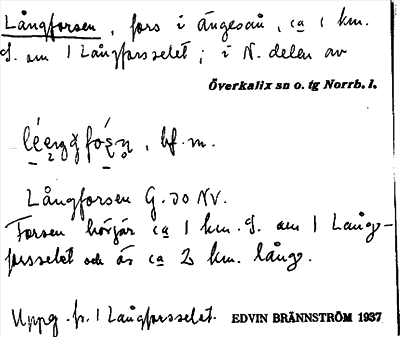 Långforsen, fors i ängesån, ca 1 km.
S. om 1 Långforsselet; i N. delen av
Överkalix sn o. tg Norrb. l.
bf. m.
Långforsen G. 30 NV.
Forsen börjar ca 1 km. S. om 1 Långf-
forsselet och är ca 2 km. lång.
Uppg. fr. 1 Långforsselet. EDVIN BRÄNNSTRÖM 1937